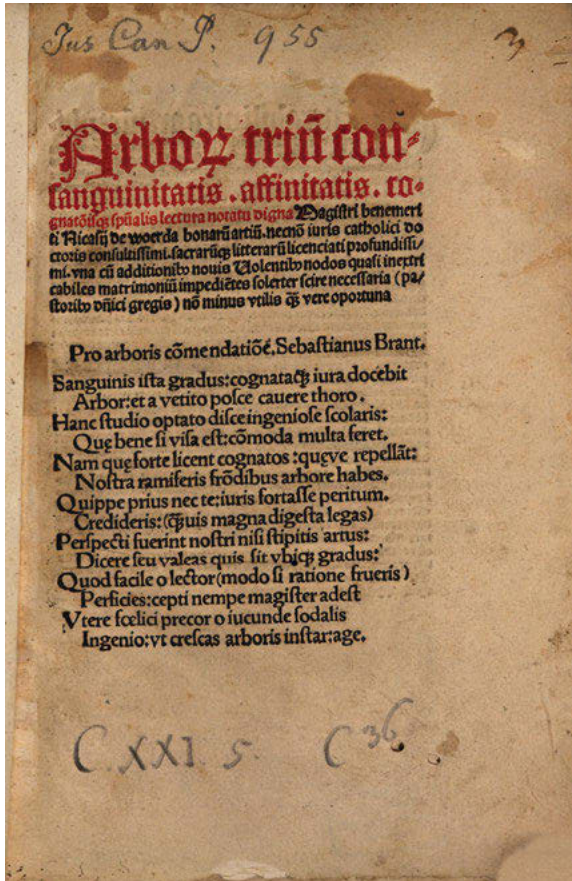 Jus Can P. 955 3
Arborꝝ triū con-
sanguinitatis . affinitatis . co-
gnatōisqꝫ spūalis lectura notatu digna Magistri benemeri
ti Nicasij de woerda bonarū artiū. necnō iuris catholici do
ctoris consultissimi. sacrarūqꝫ litterarū licenciati profundissi/
mi. vna cū additionibꝰ nouis Uolentibꝰ nodos quasi inextri
cabiles matrimoniū impediētes solerter scire necessaria (pa/
storibꝰ dn̄ici gregis) nō minus vtilis qꝫ̄ vere oportuna
Pro arboris cōmendatiōē. Sebastianus Brant.
Sanguinis ista gradus: cognataqꝫ iura docebit
Arbor: et a vetito posce cauere thoro.
Hanc studio optato disce ingeniose scolaris:
Quę bene si visa est: cōmoda multa feret.
Nam quę forte licent cognatos : quęve repellāt:
Nostra ramiferis frōdibus arbore habes.
Quippe prius nec te: iuris fortasse peritum.
Credideris: (qꝫ̄uis magna digesta legas)
Perspecti fuerint nostri nisi stipitis artus:
Dicere seu valeas quis sit vbiqꝫ gradus:
Quod facile o lector (modo si ratione frueris)
Perficies: cepti nempe magister adest
Vtere fœlici precor o iucunde sodalis
Ingenio: vt crescas arboris instar: age.
C. XXI. 5. C 36.